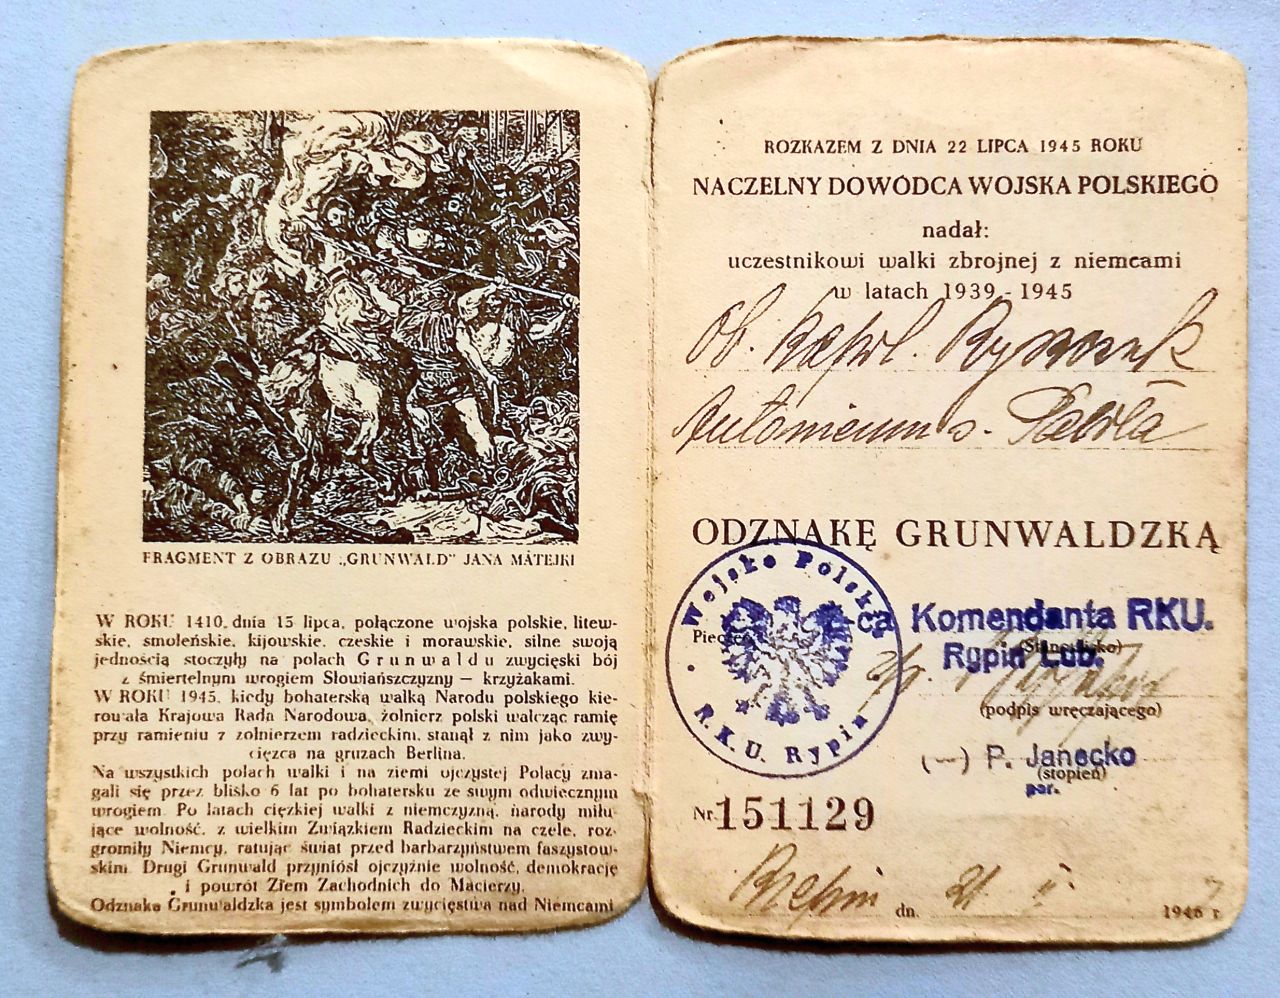 FRAGMENT Z OBRAZU „GRUNWALD" JANA MATEJKI
W ROKU 1410, dnia 15 lipca, połączone wojska polskie, litew-
skie, smoleńskie, kijowskie, czeskie i morawskie, silne swoją
jednością stoczyły na polach Grunwaldu zwycięski bój
z śmiertelnym wrogiem Słowiańszczyzny — krzyżakami.
W ROKU 1945, kiedy bohaterską walką Narodu polskiego kie-
rowała Krajowa Rada Narodowa, żołnierz polski walcząc ramię
przy ramieniu z żołnierzem radzieckim, stanął z nim jako zwy-
cięzca na gruzach Berlina.
Na wszystkich polach walki i na ziemi ojczystej Polacy zma-
gali się przez blisko 6 lat po bohatersku ze swym odwiecznym
wrogiem. Po latach ciężkiej walki z niemczyzną, narody miłu-
jące wolność, z wielkim Związkiem Radzieckim na czele, roz-
gromiły Niemcy, ratując świat przed barbarzyństwem faszystow-
skim. Drugi Grunwald przyniósł ojczyźnie wolność, demokrację
i powrót Ziem Zachodnich do Macierzy.
Odznaka Grunwaldzka jest symbolem zwycięstwa nad Niemcami
ROZKAZEM Z DNIA 22 LIPCA 1945 ROKU
NACZELNY DOWÓDCA WOJSKA POLSKIEGO
nadał:
uczestnikowi walki zbrojnej z niemcami
w latach 1939 - 1945
Ob. kapr.
Antoniemu s.
ODZNAKĘ GRUNWALDZKĄ
Wojsko Polskie
R.K.U. Rypin
ca Komendanta RKU.
(Stanowisko)
Rypin Lub.
(podpis wręczającego)
(—) P. Janecko
(stopień)
por.
Nr 151129
Rypin dn. 21 1946 r